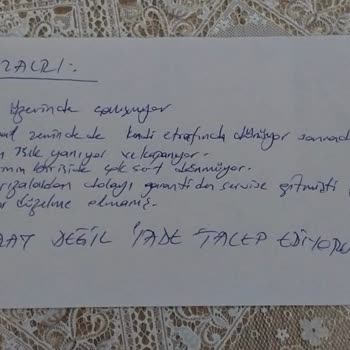 ZALRI:.
üzerinde çalışıyor
zeminde de kendi etrafında dönüyor sonrada
ısık yanıyor ve kapanıyor.
birisi de çok sert dönmüyor.
rızalardan dolayı garantiden servise gitmişti
düzelme olmamış.
AT DEĞİL İADE TALEP EDİYORU